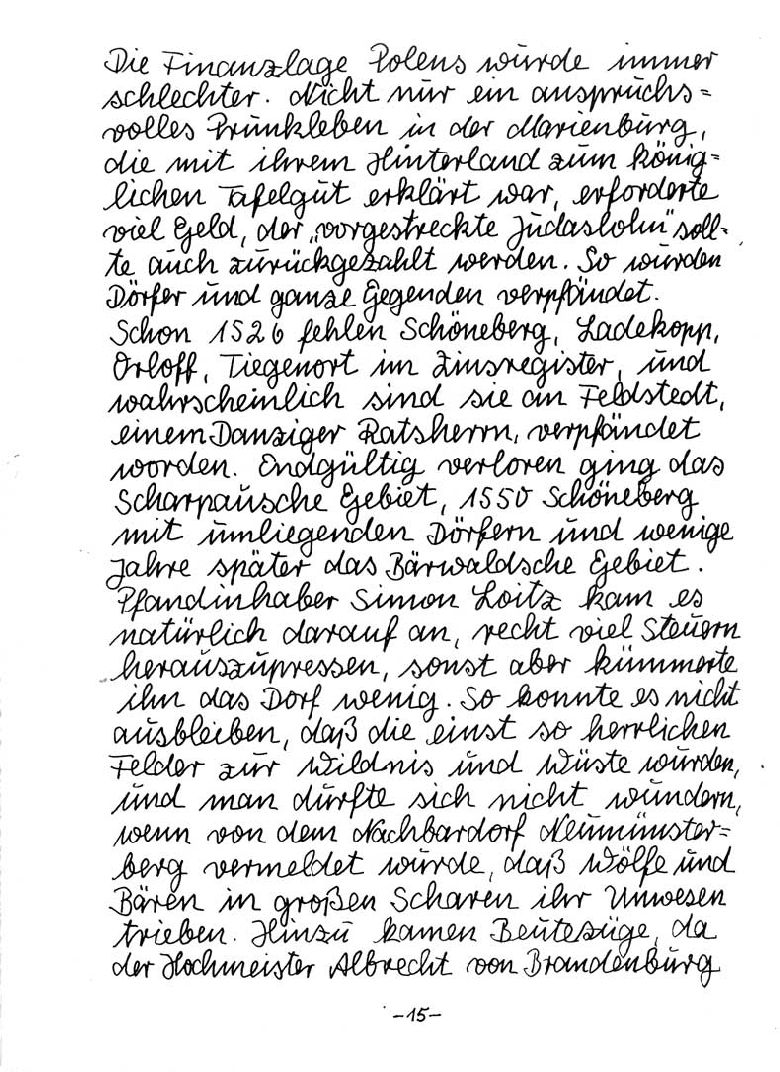 Die Finanzlage Polens wurde immer
schlechter. Nicht nur ein anspruchs=
volles Prunkleben in der Marienburg,
die mit ihrem Hinterland zum könig=
lichen Tafelgut erklärt war, erforderte
viel Geld, der „vorgestreckte Judaslohn" soll-
te auch zurückgezahlt werden. So wurden
Dörfer und ganze Gegenden verpfändet.
Schon 1526 fehlen Schöneberg, Ladekopp,
Orloff, Tiegenort im Zinsregister, und
wahrscheinlich sind sie an Feldstedt,
einem Danziger Ratsherrn, verpfändet
worden. Endgültig verloren ging das
Scharpausche Gebiet, 1550 Schöneberg
mit umliegenden Dörfern und wenige
Jahre später das Bärwaldsche Gebiet.
Pfandinhaber Simon Loitz kam es
natürlich darauf an, recht viel Steuern
herauszupressen, sonst aber kümmerte
ihn das Dorf wenig. So konnte es nicht
ausbleiben, daß die einst so herrlichen
Felder zur Wildnis und Wüste wurden,
und man durfte sich nicht wundern,
wenn von dem Nachbardorf Neumünster=
berg vermeldet wurde, daß Wölfe und
Bären in großen Scharen ihr Unwesen
trieben. Hinzu kamen Beutezüge, da
der Hochmeister Albrecht von Brandenburg
-15-